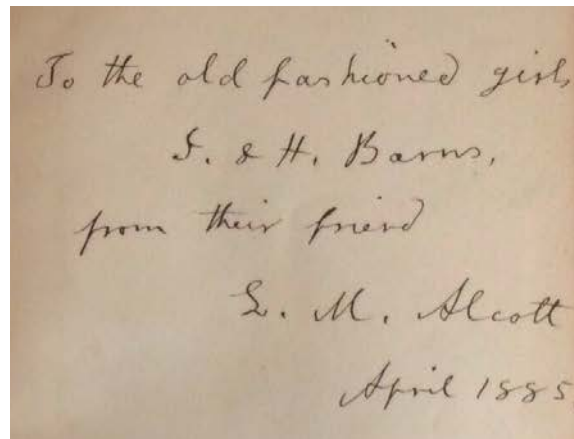 To the old fashioned girls,
I. & H. Barns,
from their friend
L. M. Alcott
April 1885.